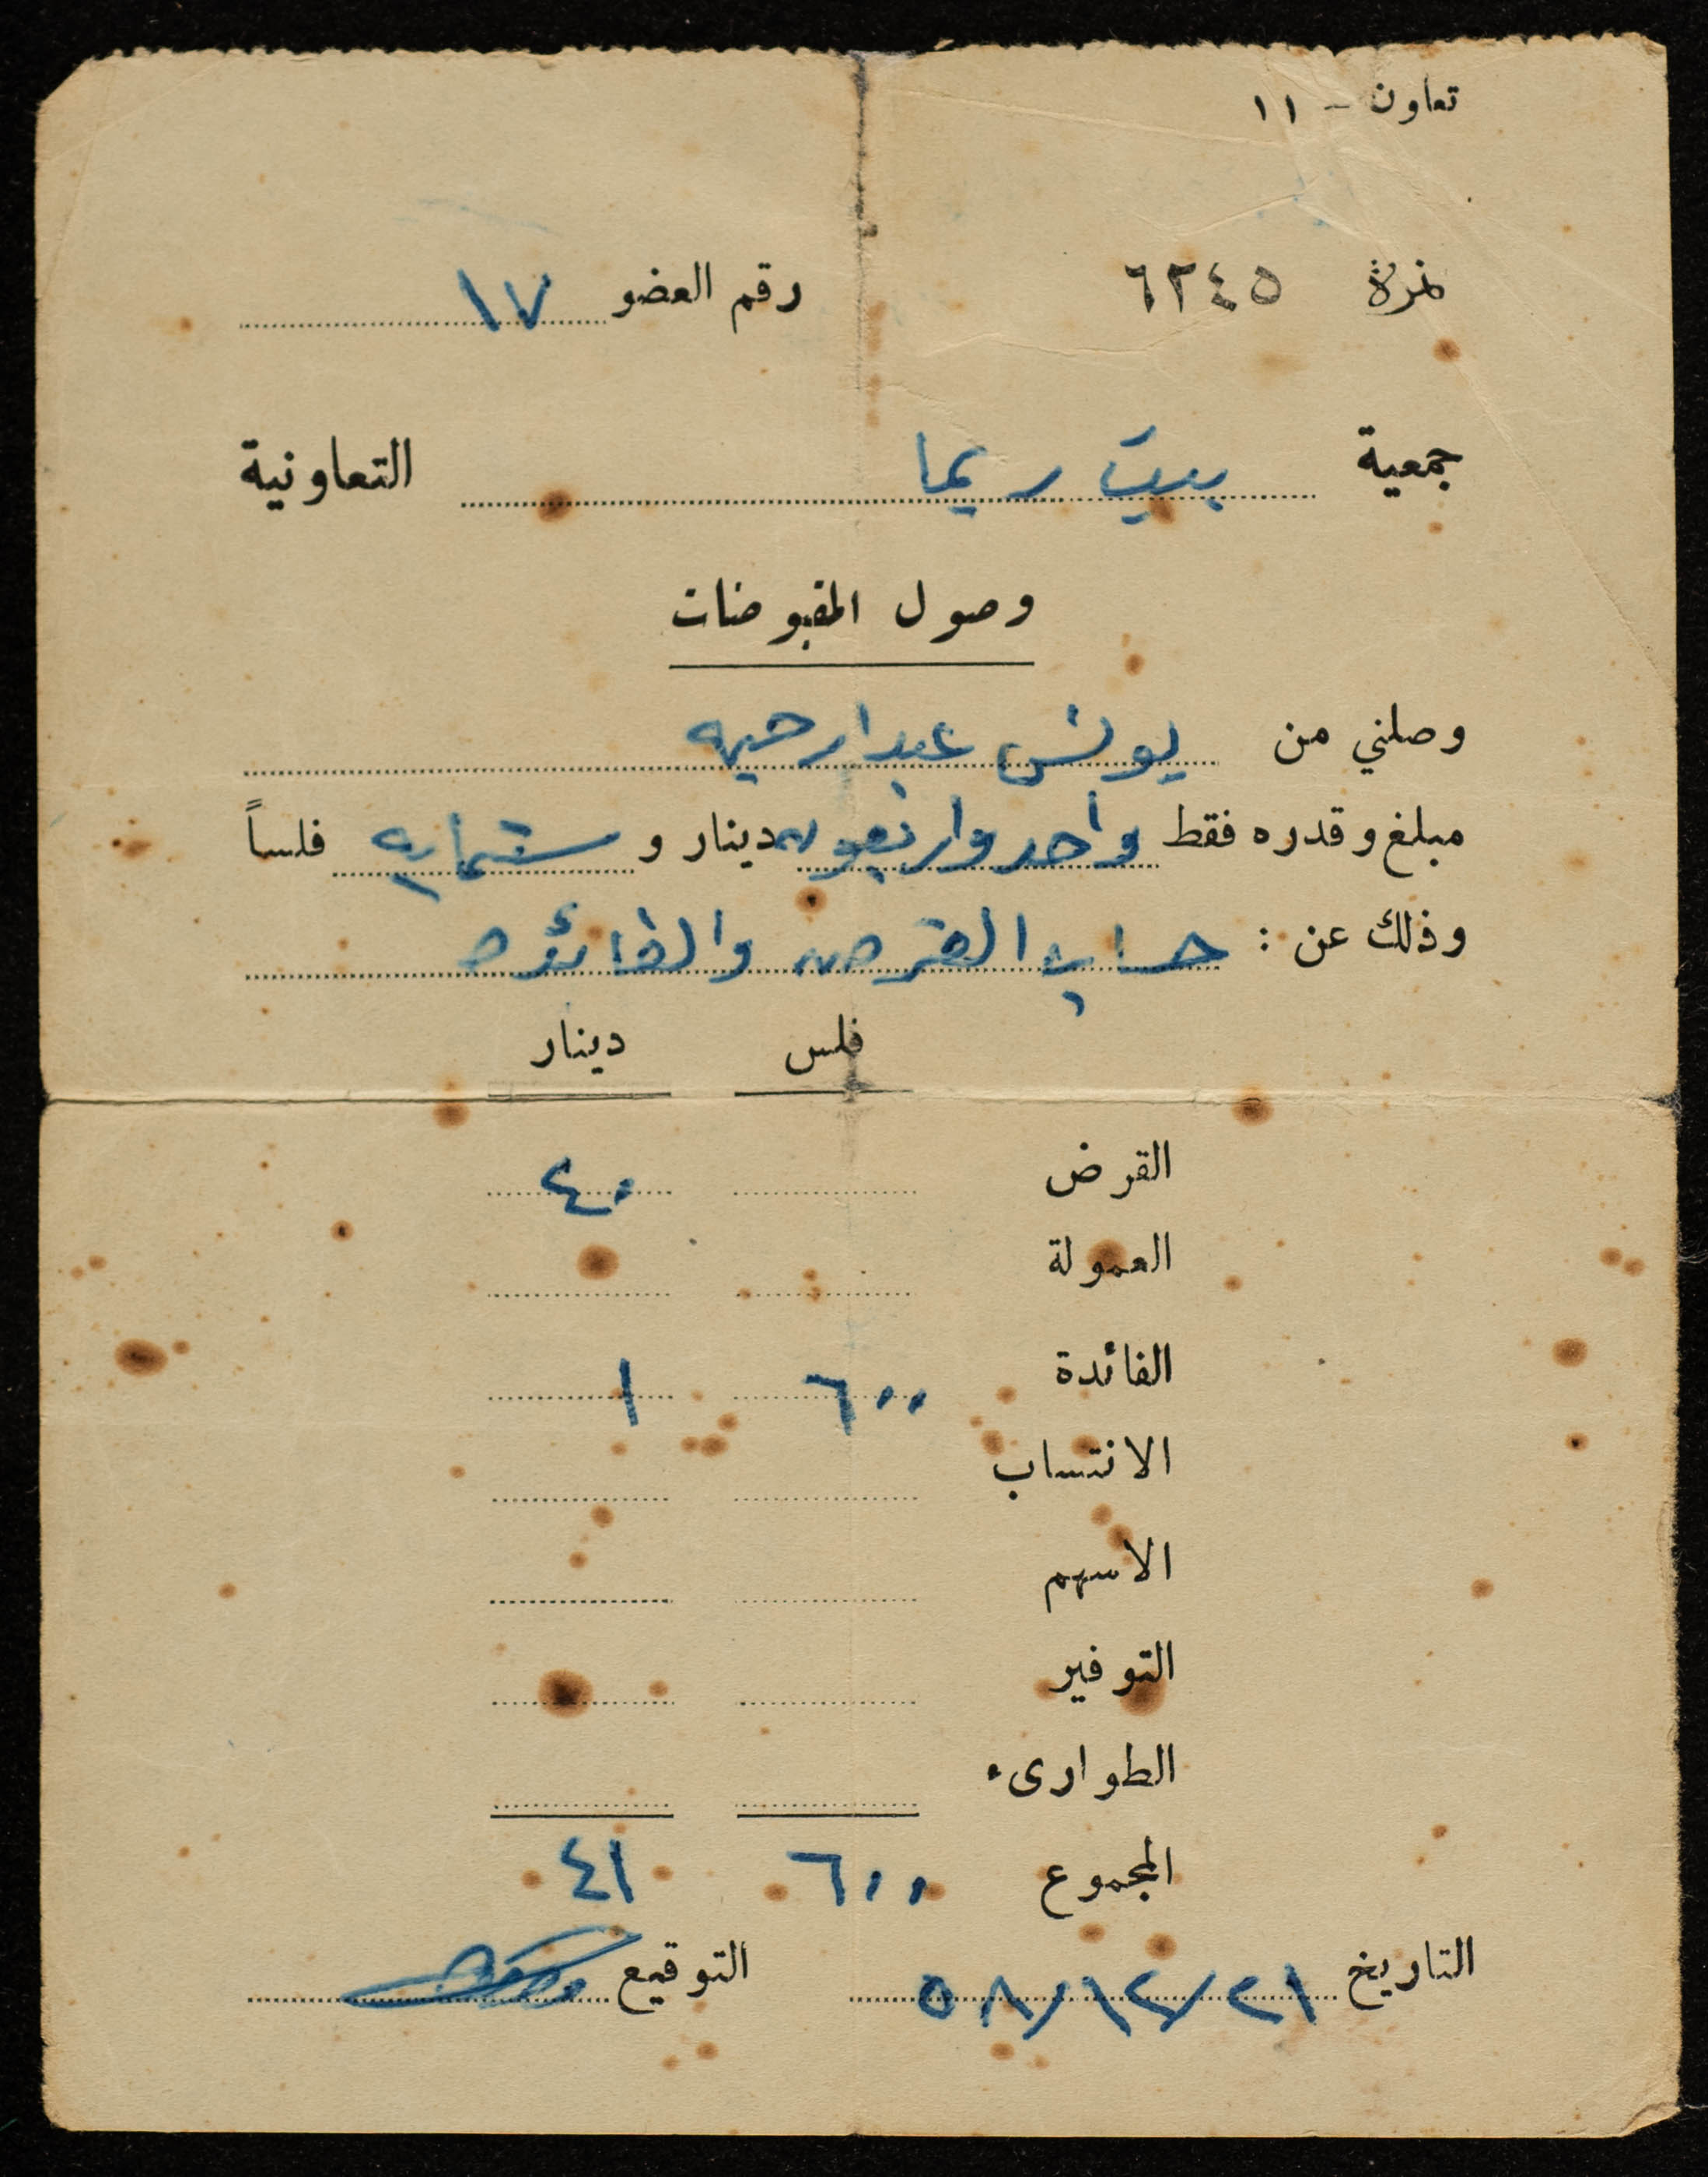 تعاون - ١١
نمرة ٦٢٤٥ رقم العضو ١٧
جمعية بيت ريما التعاونية
وصول المقبوضات
وصلني من يونس عبدالرحيم
مبلغ وقدره فقط واحد واربعون دينار و ستماية فلساً
وذلك عن : حساب القرض والفائده
فلس دينار
القرض ٤٠
العمولة
الفائدة ٦٠٠ ١
الانتساب
الاسهم
التوفير
الطوارىء
المجموع ٦٠٠ ٤١
التاريخ ٢١/١٢/٥٨ التوقيع